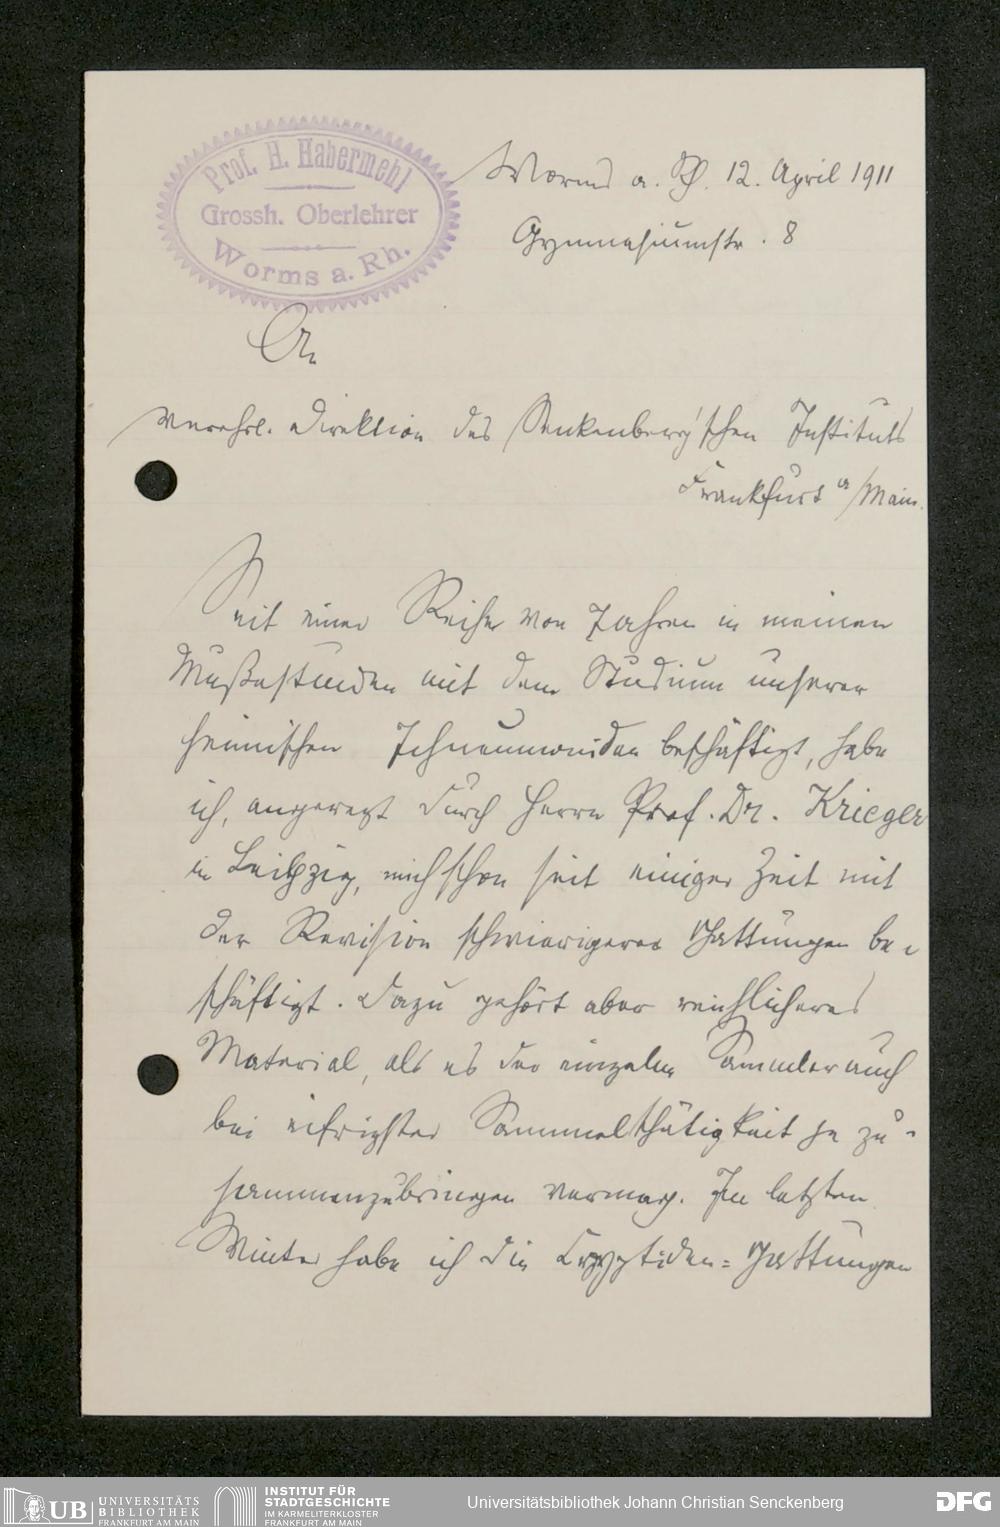 Prof. H. Habermehl
Grossh. Oberlehrer
Worms a. Rh.
Worms a. Rh. 12. April 1911
Gymnasiumstr. 8
An
verehrl. Direktion des Senkenberg'schen Instituts
Frankfurt a/Main.
Seit einer Reihe von Jahren in meinen
Mußestunden mit dem Studium unserer
heimischen Ichneumoniden beschäftigt, habe
ich, angeregt durch Herrn Prof. Dr. Krieger
in Leipzig, mich schon seit einiger Zeit mit
der Revision schwierigerer Gattungen be-
schäftigt. Dazu gehört aber reichlicheres
Material, als es der einzelne Sammler auch
bei eifrigster Sammelthätigkeit je zu-
sammenzubringen vermag. Im letzten
Winter habe ich die Cryptiden-Gattungen
UB UNIVERSITÄTS
BIBLIOTHEK
FRANKFURT AM MAIN
INSTITUT FÜR
STADTGESCHICHTE
IM KARMELITERKLOSTER
FRANKFURT AM MAIN
Universitätsbibliothek Johann Christian Senckenberg
DFG